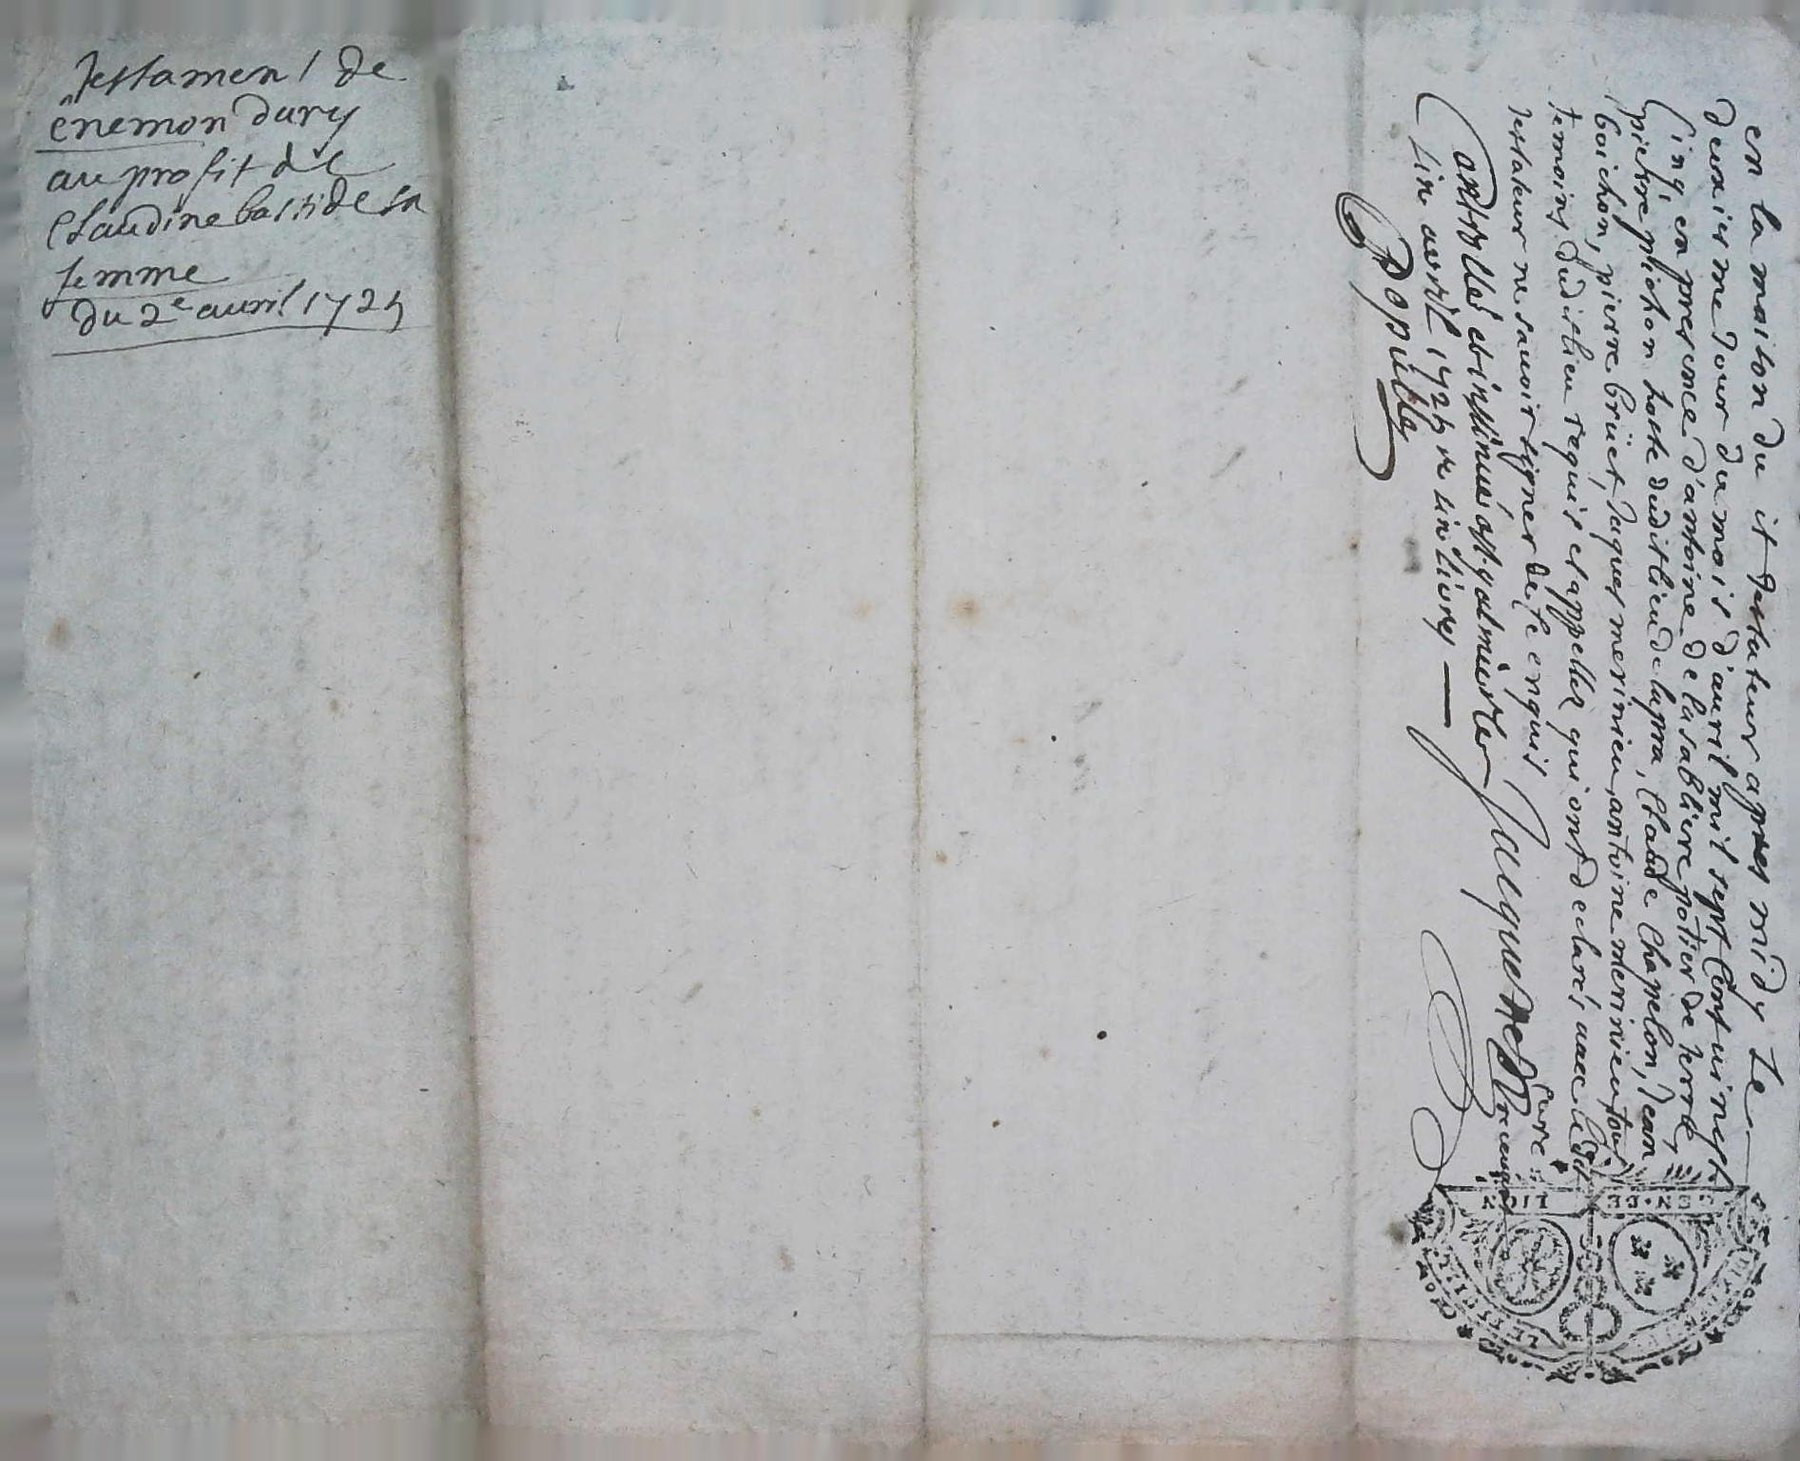 Testament de
ênemon dury
au profit de
Claudine bastide sa
femme
du 2e auril 1725
en la maison du it testateur apres midy le
deuxiesme Jour du mois d'auril mil sept Cent uingt
Cinq, en presence d'antoine de la sabliere potier de terre,
pierre plichon hoste dudit lieu de lupra, Claude Chapelon, Jean
boichon, pierre brüet, Jaques merinieu, antoine merinieu tous
temoins dudit lieu requis et appellez qui ont declarés auec ledit
testateur ne sauoir signer de ce enquis
Jacques curé
Controllé et insinué a st galmier le
cinq auril 1725 re cinq liures
Populle